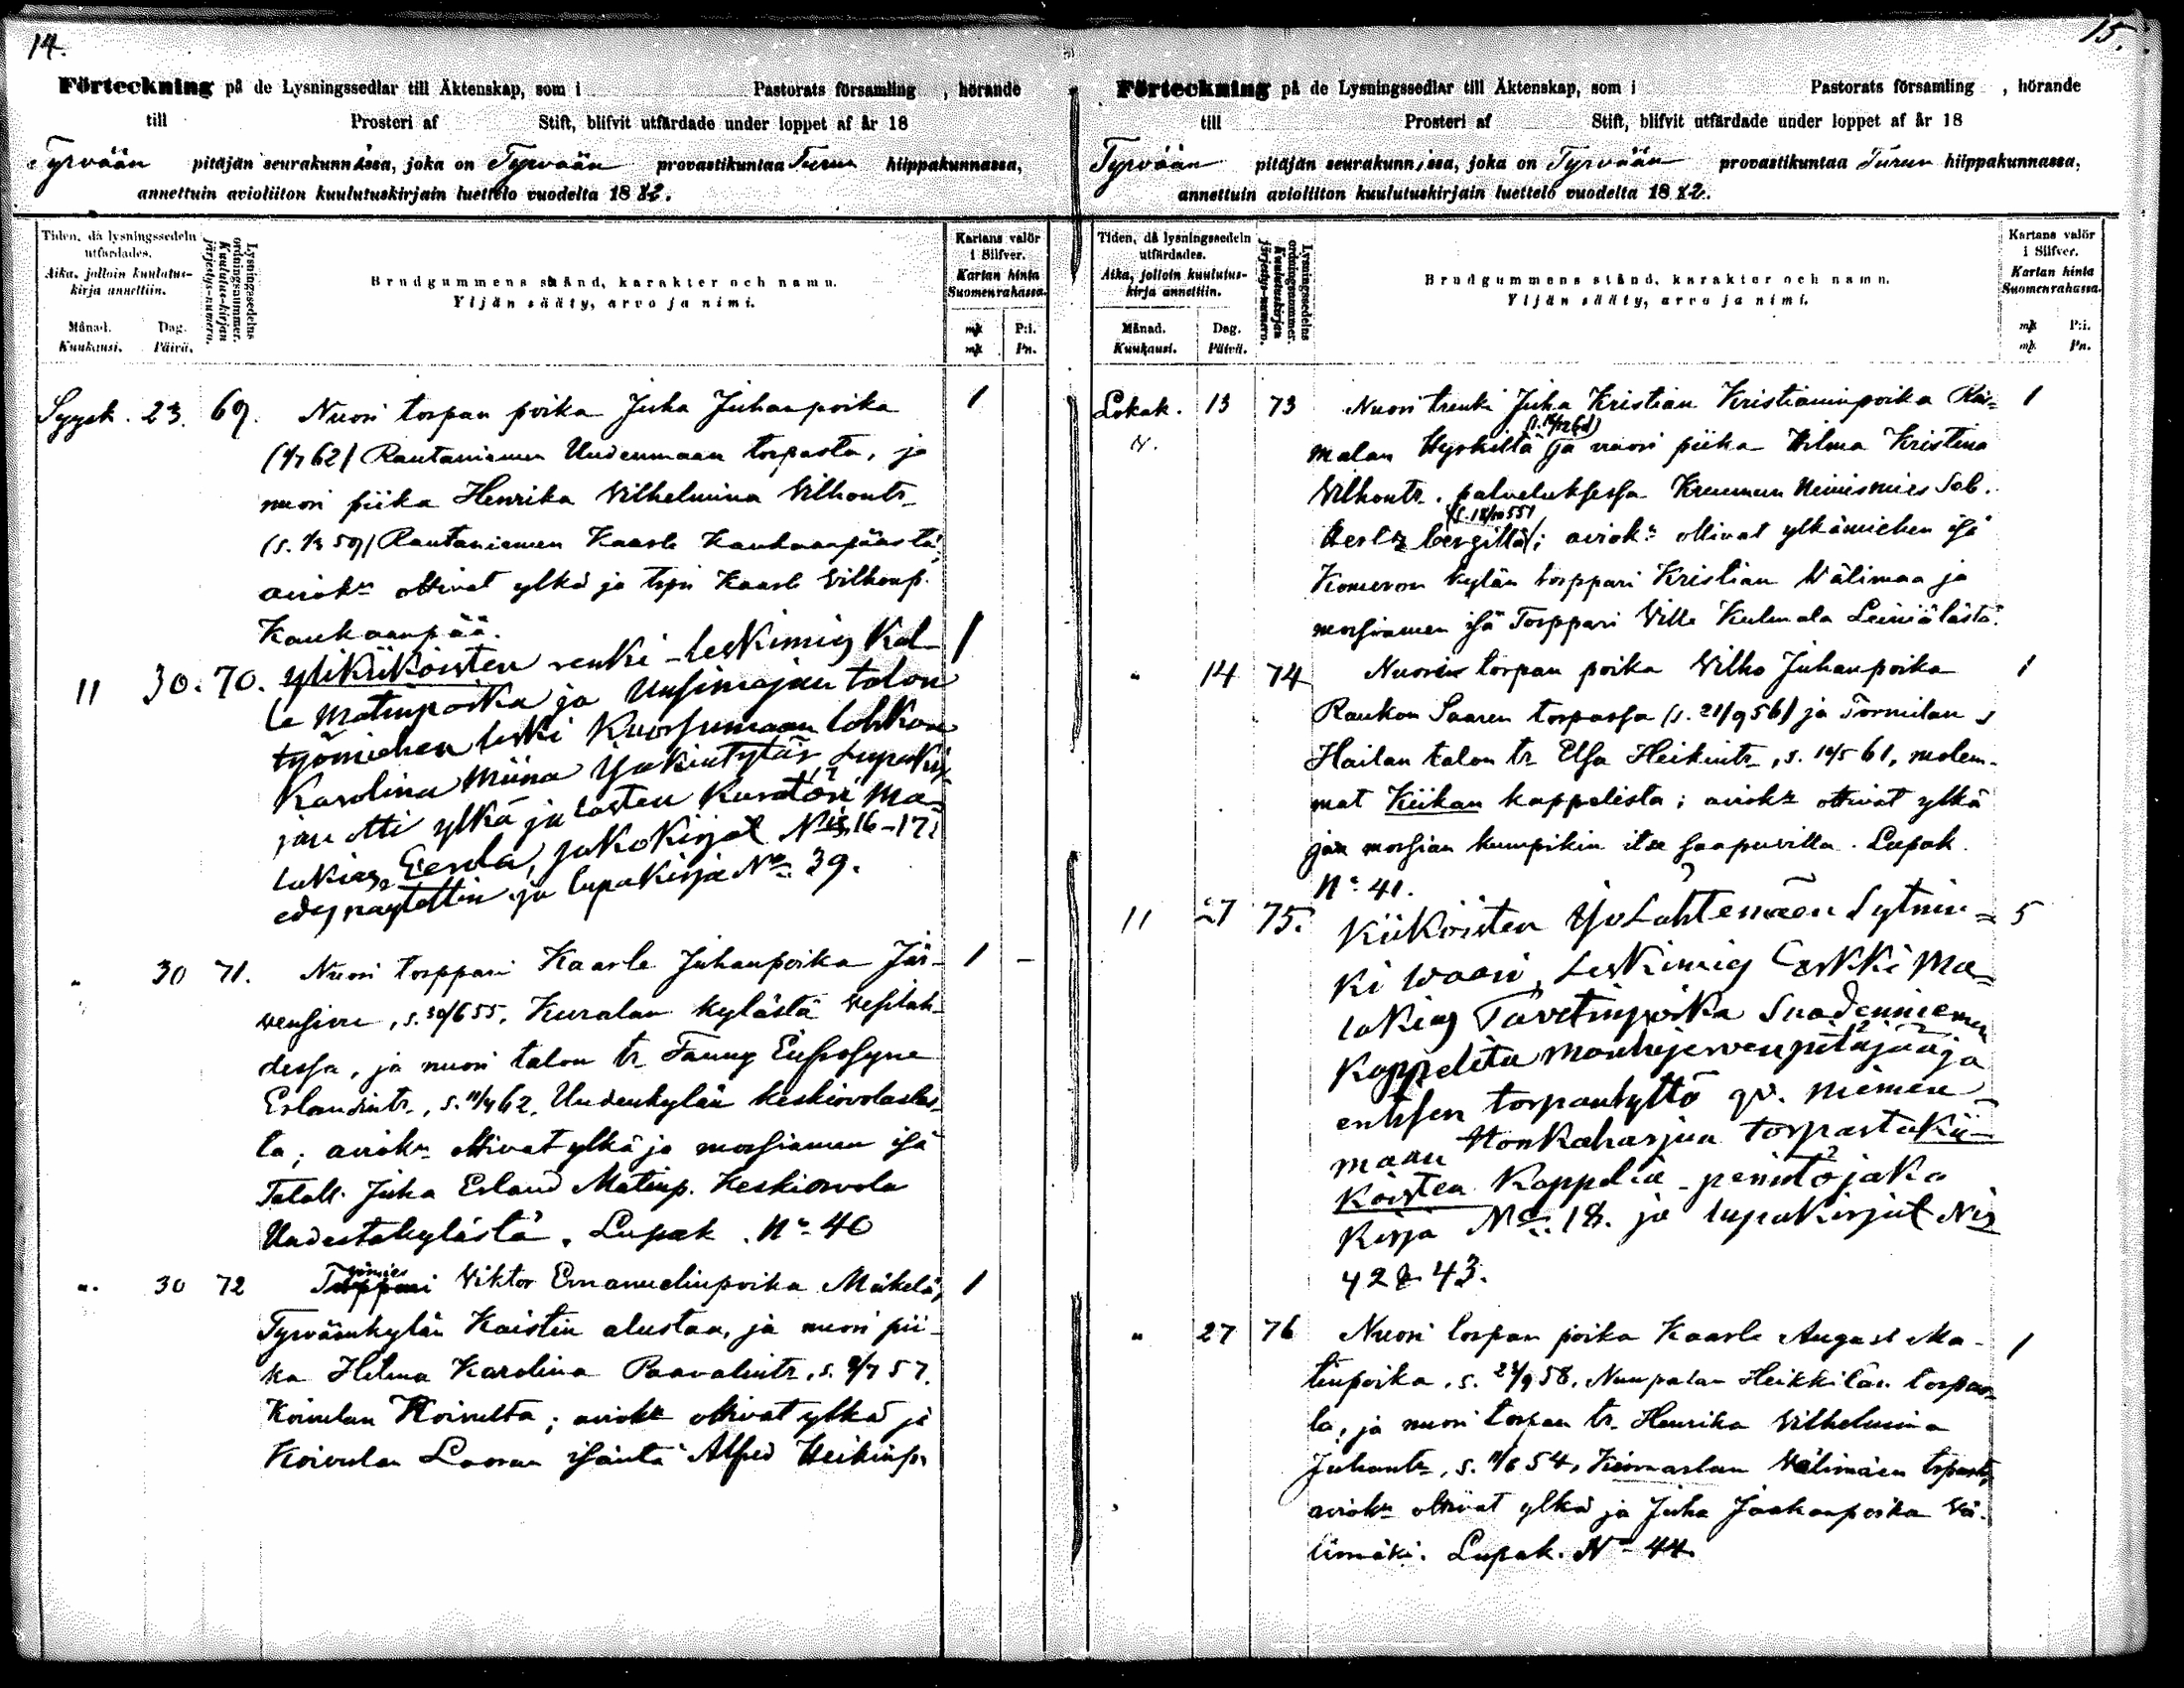 14.
Förteckning på de Lysningssedlar till Äktenskap, som i Pastorats församling , hörande
till Prosteri af Stift, blifvit utfärdade under loppet af år 18
Tyrvään pitäjän seurakunnassa, joka on Tyrvään provastikuntaa Turun hiippakunnassa,
annettuin avioliiton kuulutuskirjain luettelo vuodelta 1882.
Tiden, då lysningssedeln utfärdades.
Aika, jolloin kuulutus-
kirja annettiin.
Månad. Dag.
Kuukausi. Päivä.
Lysningssedelns
ordningsnummer.
Kuulutus-kirjan
järjestys-numero.
Brudgummens stånd, karakter och namn.
Yljän sääty, arvo ja nimi.
Kartans valör
i Silfver.
Kartan hinta
Suomen rahassa.
mk P:i.
mk Pn.
Syysk. 23. 69. Nuori torpan poika Juha Juhanpoika 1
62) Rautaniemen Uudenmaan torpasta, ja
nuori piika Henrika Vilhelmina Vilhontr
59) Rautaniemen Kaarle Kaukaanpäästä;
aviokn ottivat ylkä ja Kaarle Vilhonp.
Kaukaanpää.
11 30. 70. ylikiikoisten renki-leskimies Kal- 1
le Matinpoika ja Uusimajan talon
työmiehen leski Kuorsumaan lohkon
Karolina Miina tytär Lupakir
jan otti ylkä ja lasten kuratori Ma-
lakias Eerola, jakokirjat Nis 16-17
edesnäytettiin ja lupakirja No 39.
" 30 71. Nuori torppari Kaarle Juhanpoika Jär- 1 -
vensivu, s. 30/6 55, Kuralan kylästä Vesilah-
dessa, ja nuori talon tr. Fanny Eufrosyne
Erlandintr., s. 62, Uudenkylän Keskiorolas-
ta; aviokn ottivat ylkä ja morsiamen isä
Talall. Juha Erland Matinp. Keskiorola
Uudestakylästä. Lupak. No 40
" 30 72 Viktor Emanuelinpoika Mäkelä, 1
Tyrväänkylän Kaistin alustaa, ja nuori pii-
ka Hilma Karolina Paavalintr, s. 57.
Koivulan ; aviokn ottivat ylkä ja
Koivulan isäntä Alfred Heikinp.
15.
Förteckning på de Lysningssedlar till Äktenskap, som i Pastorats församling , hörande
till Prosteri af Stift, blifvit utfärdade under loppet af år 18
Tyrvään pitäjän seurakunnissa, joka on Tyrvään provastikuntaa Turun hiippakunnassa,
annettuin avioliiton kuulutuskirjain luettelo vuodelta 1882.
Tiden, då lysningssedeln utfärdades.
Aika, jolloin kuulutus-
kirja annettiin.
Månad. Dag.
Kuukausi. Päivä.
Lysningssedelns
ordningsnummer.
Kuulutuskirjan
järjestys-numero.
Brudgummens stånd, karakter och namn.
Yljän sääty, arvo ja nimi.
Kartans valör
i Silfver.
Kartan hinta
Suomen rahassa.
mk P:i.
mk. Pn.
Lokak. 13 73 Nuori trenki Juha Kristian Kristianinpoika 1
malan ja nuori piika Hilma Kristina
Vilhontr. palveluksessa Kruunun Nimismies
Hertzbergillä; aviokn ottivat ylkämiehen isä
Komeron kylän torppari Kristian Välimaa ja
morsiamen isä Torppari Ville Kulmala Leiniälästä.
" 14 74 torpan poika Vilho Juhanpoika 1
Raukon Saaren torpassa (s. 21/9 56) ja Tormilan
Hailan talon tr. Elsa Heikintr, s. 61, molem-
mat Kiikan kappelista; aviokn ottivat ylkä
ja morsian kumpikin itse saapuvilla. Lupak.
No 41.
11 27 75. Kiikoisten 5
leskimies Ma-
lakias Suodenniemen
kappelita Mouhijärven pitäjää ja
entisen torpantyttö
maan Honkaharjun torpasta Kii-
koisten kappelia - perintöjako
kirja No 18. ja lupakirjat Nis
42 & 43.
" 27 76 Nuori torpan poika Kaarle August Ma- 1
tinpoika, s. 58, Nuupalan Heikkilän torpas-
ta, ja nuori torpan tr. Henrika Vilhelmina
Juhantr, s. 54, Kiimaslan Välimäen torpasta,
aviokn ottivat ylkä ja Juha Jaakonpoika Vä-
limäki. Lupak. No 44.